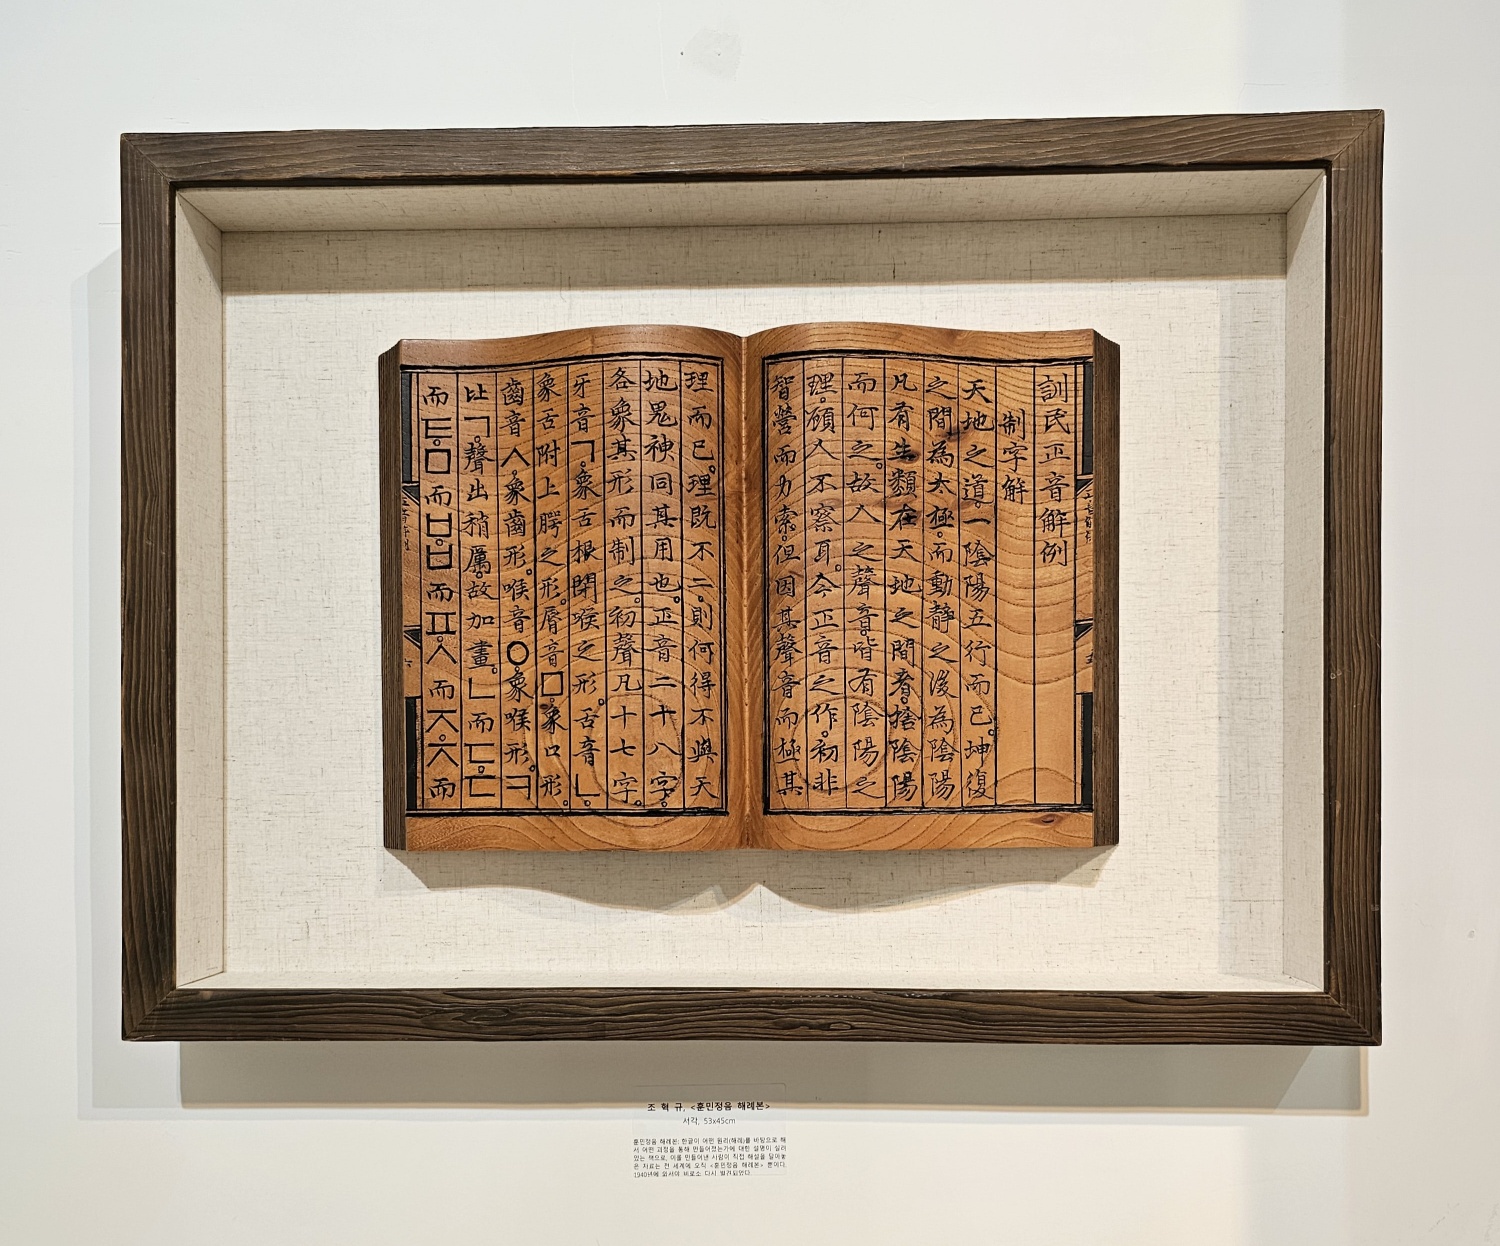 訓民正音解例
制字解
天地之道。一陰陽五行而已。坤復
之間為太極。而動靜之後為陰陽
凡有生類在天地之間者。捨陰陽
而何之。故人之聲音。皆有陰陽之
理。顧人不察耳。今正音之作。初非
智營而力索。但因其聲音而極其
理而已。理既不二。則何得不與天
地鬼神同其用也。正音二十八字。
各象其形而制之。初聲凡十七字。
牙音ㄱ。象舌根閉喉之形。舌音ㄴ。
象舌附上腭之形。脣音ㅁ。象口形。
齒音ㅅ。象齒形。喉音ㅇ。象喉形。ㅋ
比ㄱ。聲出稍厲。故加畫。ㄴ而ㄷ。ㄷ
而ㅌ。ㅁ而ㅂ。ㅂ而ㅍ。ㅅ而ㅈ。ㅈ而
조 혁 규, <훈민정음 해례본>
서각, 53x45cm
훈민정음 해례본: 한글이 어떤 원리(해례)를 바탕으로 해
서 어떤 과정을 통해 만들어졌는가에 대한 설명이 실려
있는 책으로, 이를 만들어낸 사람이 직접 해설을 달아놓
은 자료는 전 세계에 오직 <훈민정음 해례본> 뿐이다.
1940년에 와서야 비로소 다시 발견되었다.